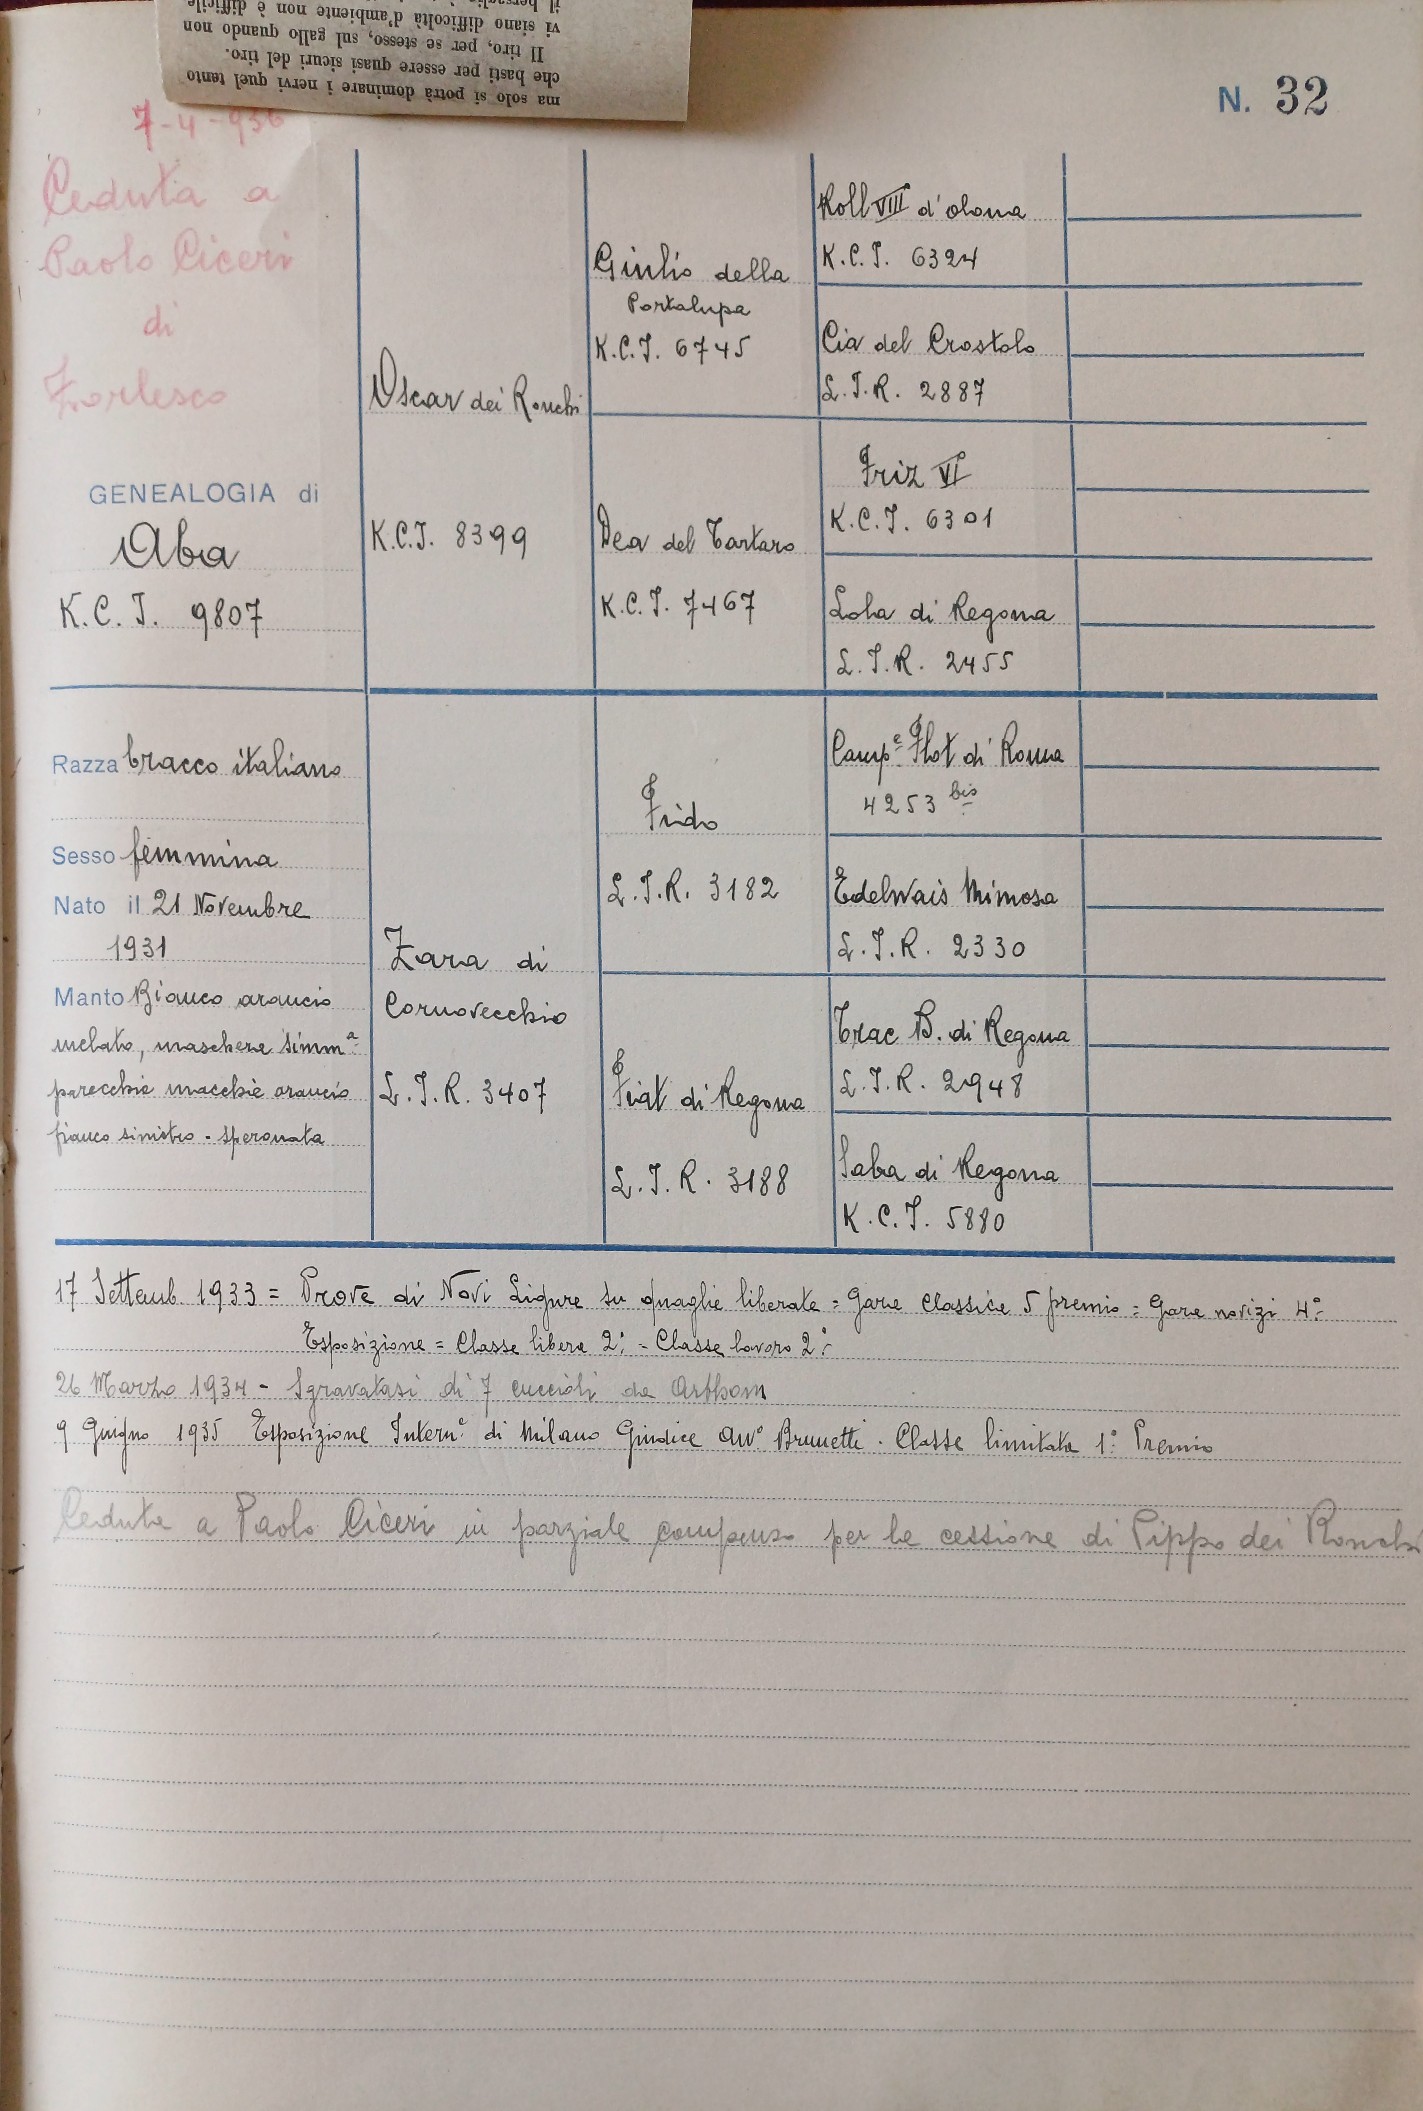 ma solo si potrà dominare i nervi quel tanto
che basti per essere quasi sicuri del tiro.
Il tiro, per se stesso, sul gallo quando non
vi siano difficoltà d'ambiente non è difficile
N. 32
7-4-936
Ceduta a
Paolo Ciceri
di
Zorlesco
GENEALOGIA di
Aba
K.C.I. 9807
Razza bracco italiano
Sesso femmina
Nato il 21 Novembre
1931
Manto Bianco arancio
melato, maschera simm.a
parecchie macchie arancio
fianco sinistro - speronata
Oscar dei Ronchi
K.C.I. 8399
Zara di
Cornovecchio
L.I.R. 3407
Giulio della
Portalupa
K.C.I. 6745
Dea del Tartaro
K.C.I. 7467
Frido
L.I.R. 3182
Fiat di Regona
L.I.R. 3188
Roll VIII d'olona
K.C.I. 6324
Cia del Crostolo
L.I.R. 2887
Friz VI
K.C.I. 6301
Lola di Regona
L.I.R. 2455
Camp.e Flot di Roma
4253 bis
Edelwais Mimosa
L.I.R. 2330
Trac B. di Regona
L.I.R. 2948
Saba di Regona
K.C.I. 5880
17 Settemb. 1933 = Prove di Novi Ligure su quaglie liberate = Gara classica 5 premio = Gara novizi 4°-
Esposizione = Classe libera 2° - Classe lavoro 2°-
26 Marzo 1934 - Sgravatasi di 7 cuccioli da
9 Giugno 1935 Esposizione Intern.e di Milano Giudice Avv° Brunetti - Classe limitata 1° Premio
Ceduta a Paolo Ciceri in parziale compenso per la cessione di Pippo dei Ronchi